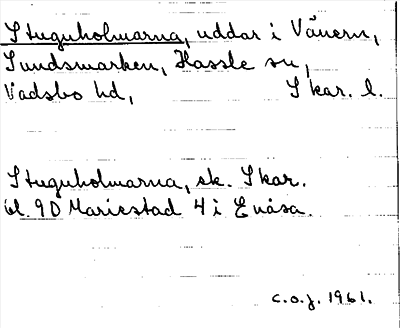 Stuguholmarna, uddar i Vänern,
Sundsmarken, Hassle sn,
Vadsbo hd, Skar. l.
Stuguholmarna, sk. Skar.
bl. 90 Mariestad 4 i Enåsa.
C.O.J. 1961.